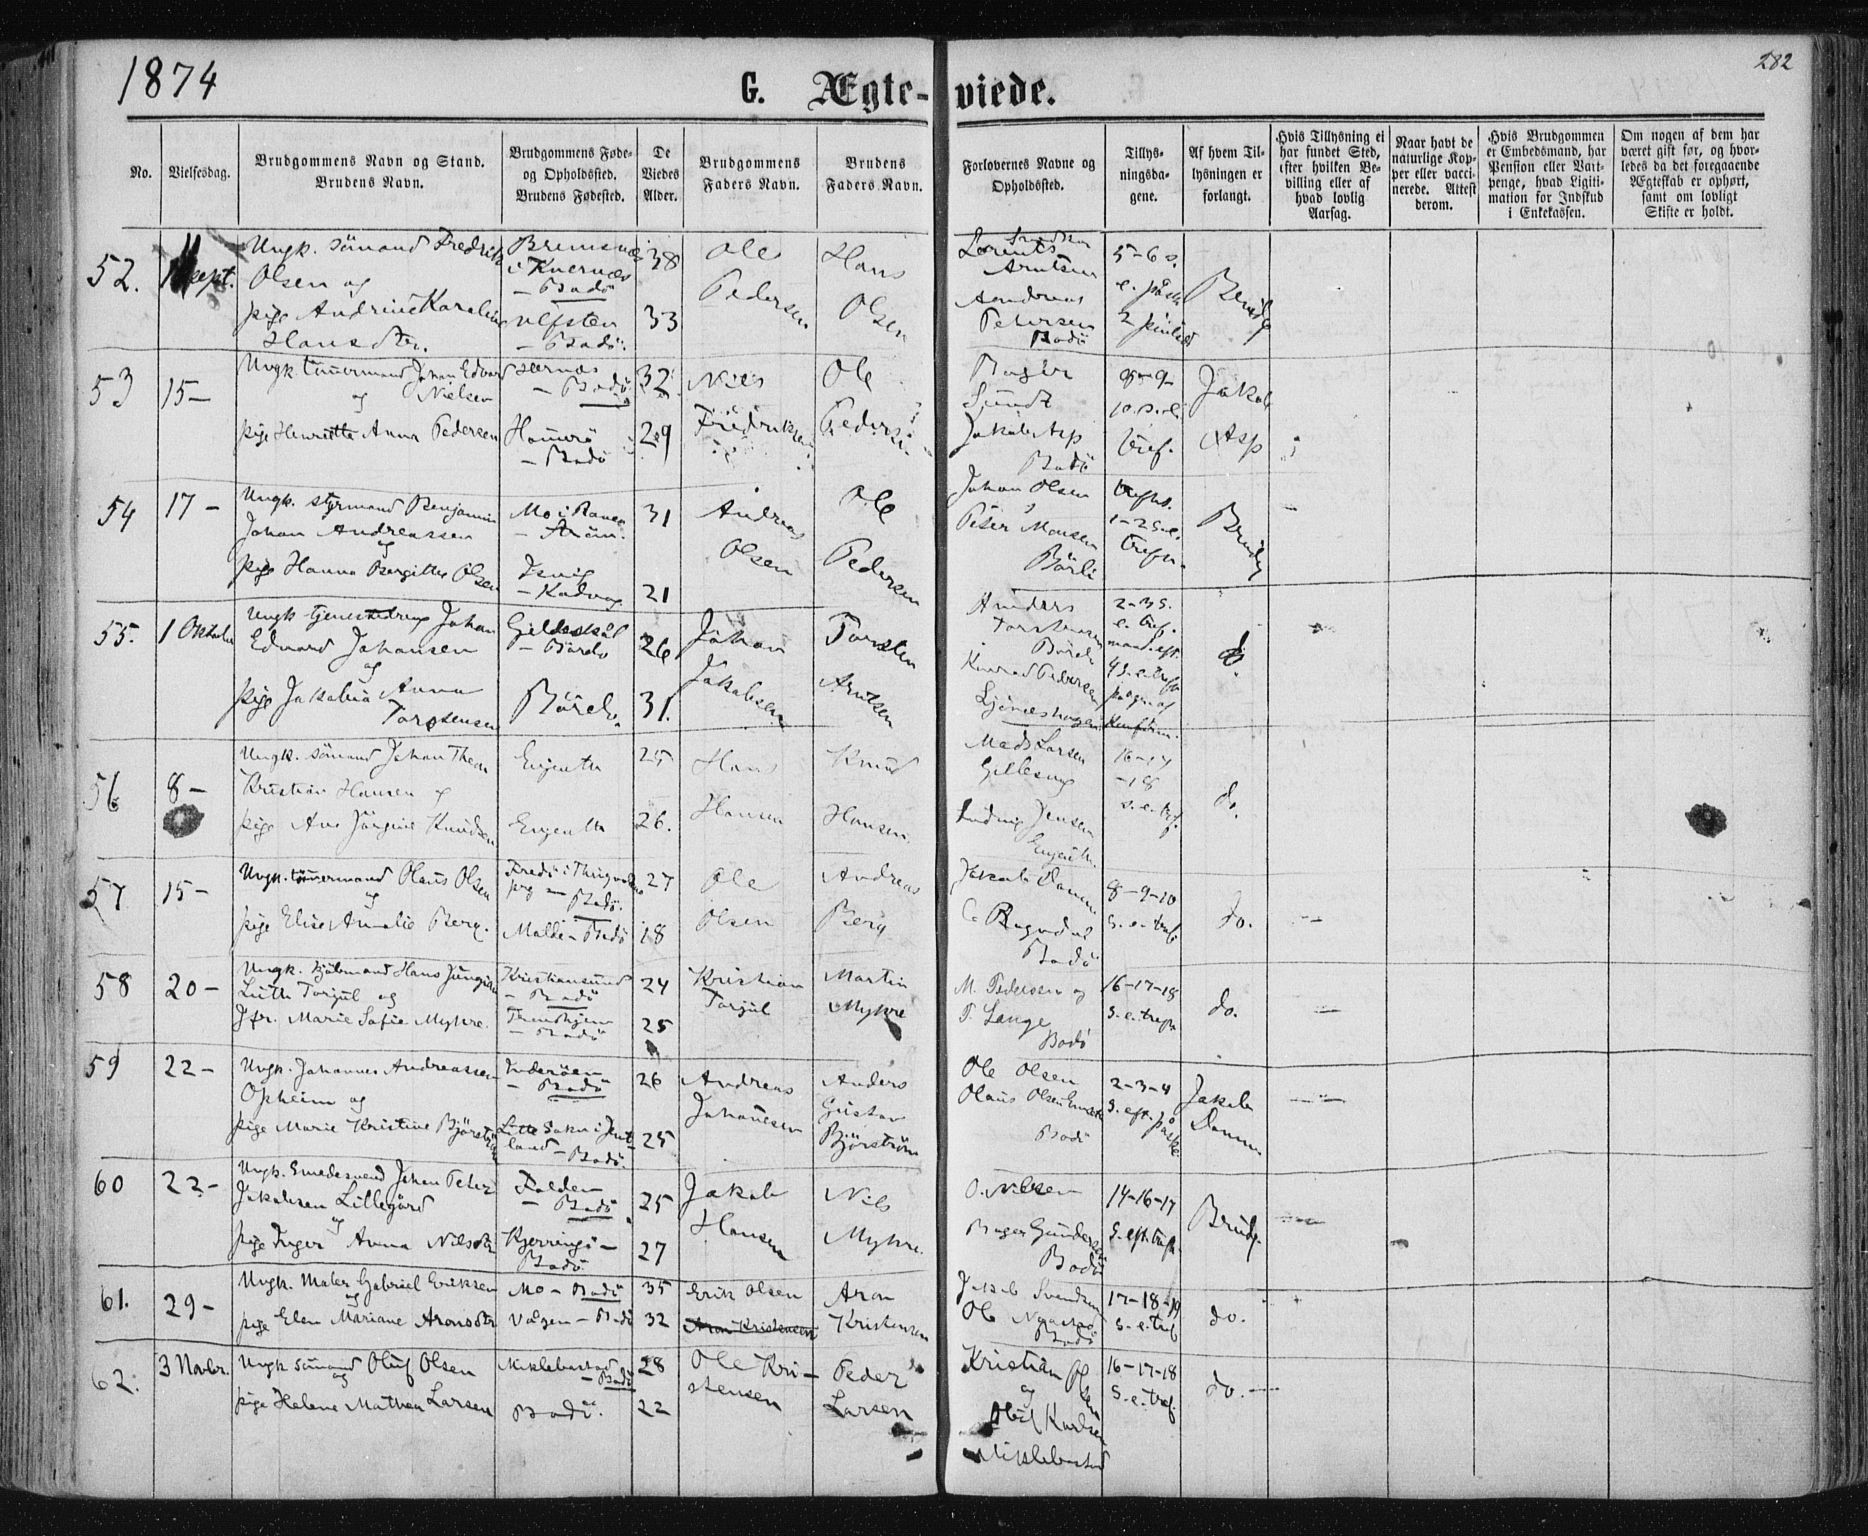 1874
282
G. Ægte-viede.
No.
Vielsesdag.
Brudgommens Navn og Stand.
Brudens Navn.
Brudgommens Føde-
og Opholdssted.
Brudens Fødested.
De
Viedes
Alder.
Brudgommens
Faders Navn.
Brudens
Faders Navn.
Forlovernes Navne og
Opholdssted.
Tillys-
ningsda-
gene.
Af hvem Til-
lysningen er
forlangt.
Hvis Tillysning ei
har fundet Sted,
efter hvilken Be-
villing eller af
hvad lovlig
Aarsag.
Naar havt de
naturlige Kop-
per eller vacci-
nerede. Attest
derom.
Hvis Brudgommen
er Embedsmand, har
Pension eller Vart-
penge, hvad Legiti-
mation for Indskud
i Enkekassen.
Om nogen af dem har
været gift før, og hvor-
ledes da det foregaaende
Ægteskab er ophørt,
samt om lovligt
Skifte er holdt.
52. 11 sept.
Ungk. sömand Fredrik
Olsen og
pige Andrine Karoline
Hansdtr.
Bremsnæs
i Kvernæs
- Bodö
- Bodö.
38
33
Ole
Pedersen
Hans
Olsen
Lorents
Arntsen
Andreas
Petersen
Bodö
5-6 s.
Brudg
53 15-
Ungk. tömermand Johan Edvard
og Nielsen
pige Henriette Anna Pedersen
- Bodö
Hamerö
- Bodö
32
29
Niels
Fredriksen
Ole
Pedersen
Sundt
Jakob Asp
Bodö
8-9-
10 s. e.
tref.
Jakob
Asp
54 17-
Ungk. styrmand Benjamin
Johan Andreassen
og
pige Hanna Bergitte Olsen
Mo i Ranen
31
21
Andreas
Olsen
Ole
Pedersen
Johan Olsen
Peter Monsen
1-2 s. e.
trefn.
Brudg
55. 1 Oktober
Ungk. tjenestedreng Johan
Edvard Johansen
og
pige Jakobia Anna
Torstensen
Gildeskål
26
31.
Johan
Jakobsen
Torsten
Arntsen
Anders
Torstensen
Konrad Pedersen
2-3 s.
e. tref.
4 s. e. trefn
do.
56 8-
Ungk. sömand Johan Theor
Kristian Hansen og
pige Ane Jörgine Knudsen
25
26.
Hans
Hansen
Knud
Hansen
Mads Larsen
Gillesvag
Ludvig Jensen
16-17
-18
s. e. tref.
do.
57 15-
Ungk. tömermand Olaus Olsen
og
pige Elise Amalie Berg.
Fredö i Thingvold
prg - Bodö.
Molde - Bodö
27
18
Ole
Olsen
Andreas
Berg
Jakob Damm
Bodö
8-9-10
s. e. tref.
do.
58 20-
Ungk. Hans Jürgen
Lüth Torjul og
Jfr. Marie Sofie Myhre.
Kristiansund
- Bodö
Trondhjem
- Bodö
24
25
Kristian
Torjul
Martin
Myhre
M. Pedersen og
T. Lange
Bodö
16-17-18
s. e. trefn
do.
59 22-
Ungk. Johannes Andreassen
Opheim og
pige Marie Kristine Björström
Inderöen
- Bodö
land - Bodö.
26
25
Andreas
Johansen
Anders
Gustav
Björström
Ole Olsen
Olaus Olsen
Bodö
2-3-4
s. eft. påske
Jakob
Damm
60 22-
Ungk. Smedesvend Johan Peter
Jakobsen Lillegård
og
pige Inger Anna Nilsdtr
Folden
- Bodö.
Kjerringö -
Bodö
25
27
Jakob
Hansen
Nils
Myhre
O. Nilsen
Bodö
14-16-17
s. eft. trefn.
Brudg.
61. 29-
Ungk. Maler Gabriel Eriksen
og
pige Elen Mariane Aronsdtr
Mo - Bodö
Vaagen - Bodö
35
32
Erik Olsen
Aron Kristensen
Aron
Kristensen
Jakob Svendsen
Ole
Bodö
17-18-19
s. e. tref
do.
62. 3 Novbr.
Ungk sömand Oluf Olsen
og
pige Helene Mathea Larsen
Miklebostad
- Bodö
Bodö.
28
22
Ole Kri-
stensen
Peder
Larsen
Kristian Olsen
og
Oluf Karlsen
Miklebostad
16-17-18
s. e. tref.
do.